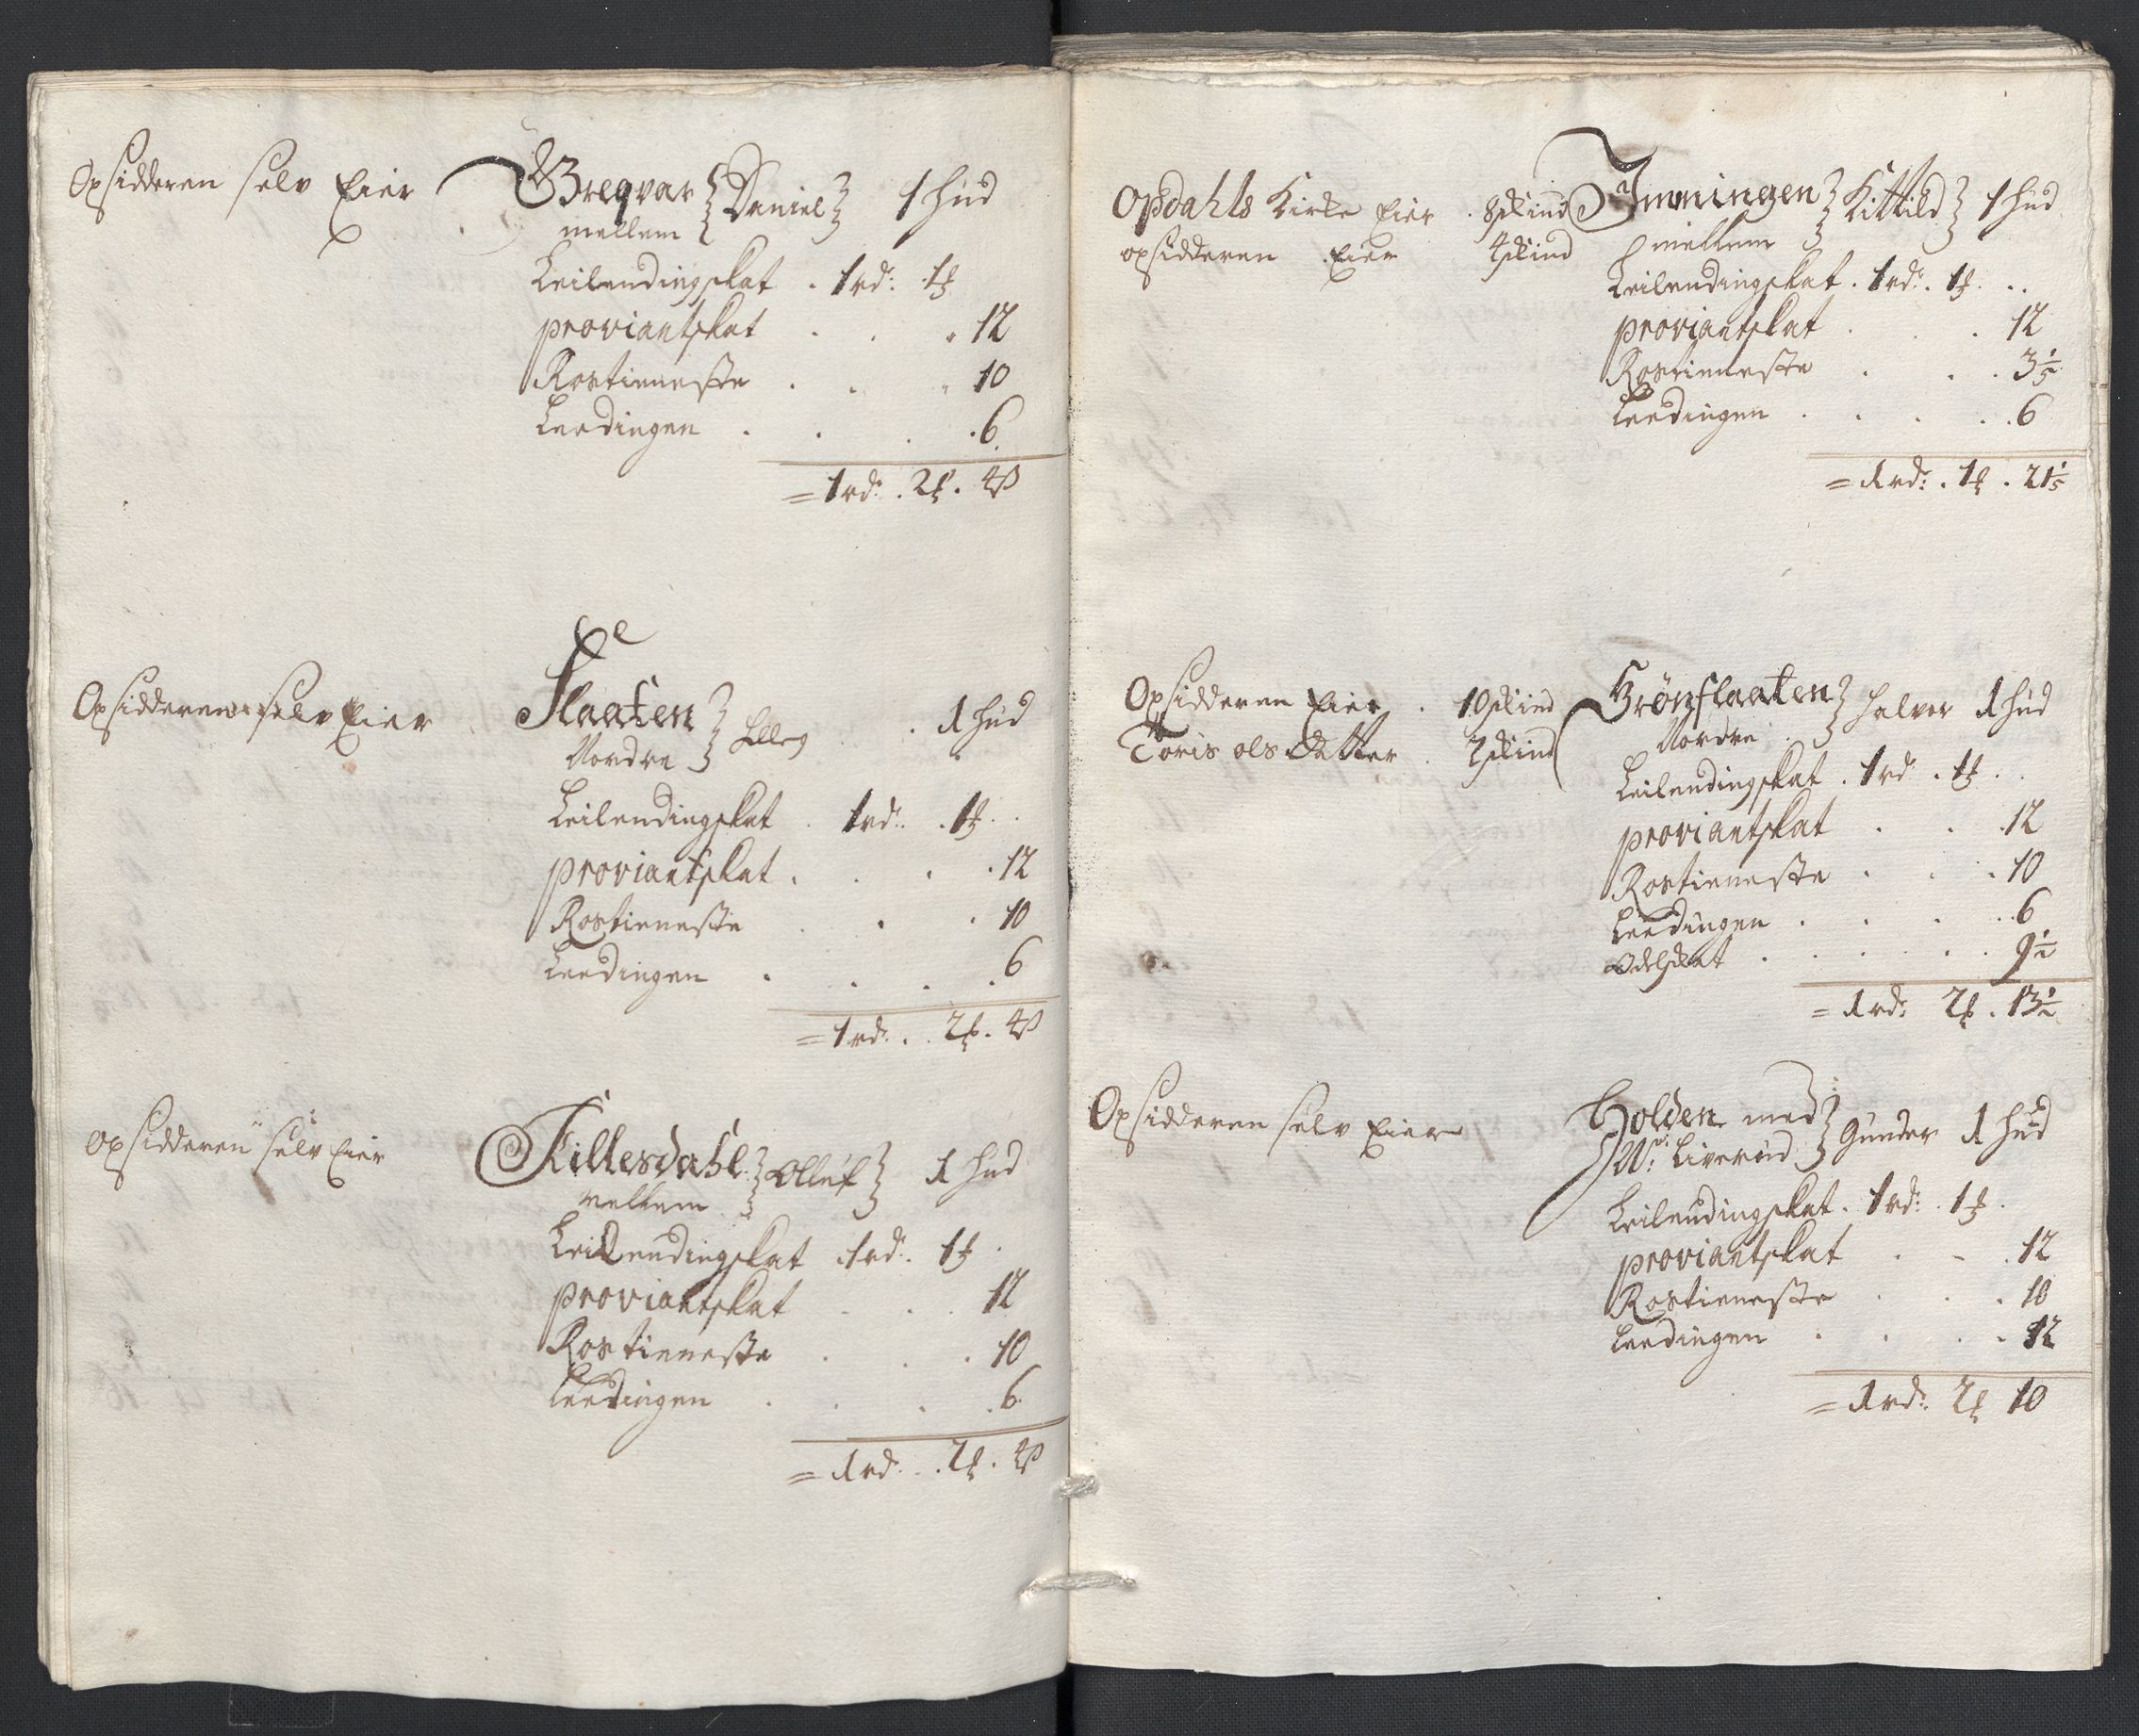 Opsidderen selv Eier Bregvar Daniel 1 hud
mellem
Leilendingskat . 1 rd: 1 ƶ
proviantskat . . . 12
Rostieneste . . . 10
Leedingen . . . . 6
= 1 rd: . 2 ƶ . 4 ß
Opsidderen selv Eier Flaaten 1 hud
Nordre
Leilendingskat . 1 rd: . 1 ƶ .
proviantskat . . . . 12
Rostieneste . . . 10
Leedingen . . . . 6
= 1 rd: . . 2 ƶ . 4 ß
Opsidderen selv Eier Killesdahl Olluf 1 hud
mellem
Leilendingskat . 1 rd: 1 ƶ .
proviantskat . . . 12
Rostieneste . . . 10
Leedingen . . . . 6
= 1 rd: . . 2 ƶ . 4 ß
Opdahls Kirke Eier . 8 skind Imningen Kittild 1 hud
opsidderen Eier 4 skind mellem
Leilendingskat . 1 rd: . 1 ƶ . . .
proviantskat . . 12
Rostieneste . . . 3 1/5
Leedingen . . . . . 6
= 1 rd: . 1 ƶ . 21 1/5
Opsidderen Eier . 10 skind Grönflaaten halvor 1 hud
Toris ols Datter . 2 skind Nordre
Leilendingskat . 1 rd . 1 ƶ . .
proviantskat . . . 12
Rostieneste . . . 10
Leedingen . . . . . 6
Odelskat . . . . . . 9 1/2
= 1 rd: 2 ƶ . 13 1/2
Opsidderen selv Eier Holden med Gunder 1 hud
W: Liverud
Leilendingskat . 1 rd: . 1 ƶ .
proviantskat . - . 12
Rostieneste . . . 10
Leedingen . . . . 12
= 1 rd: 2 ƶ 10